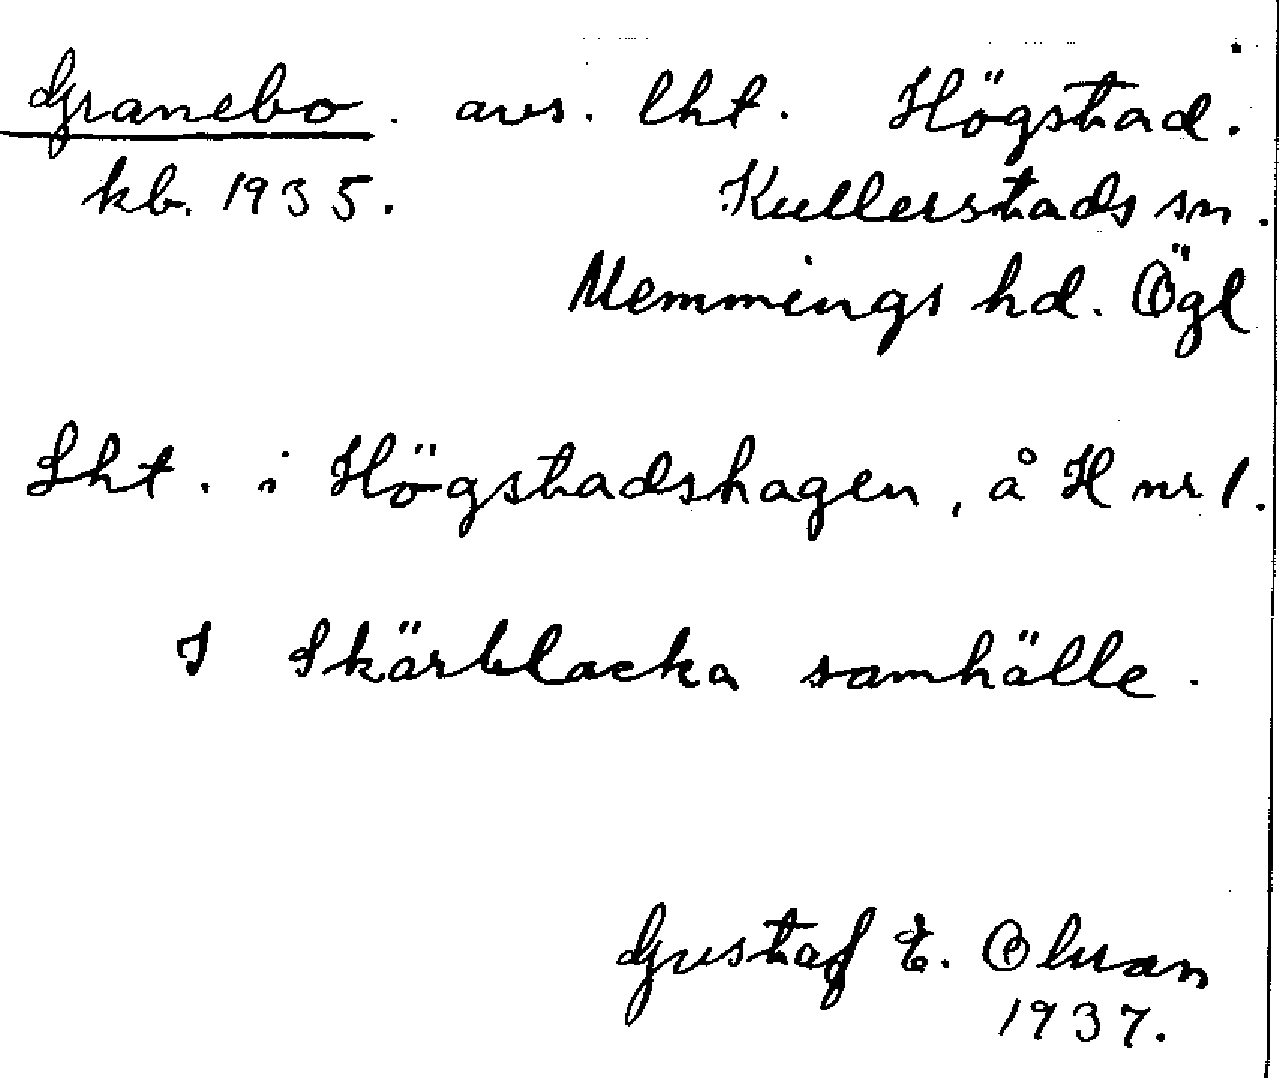 Granebo. avs. lht. Högstad.
kb. 1935. Kullerstads sn.
Memmings hd. Ögl
Lht. i Högstadshagen, å H nr 1.
I Skärblacka samhälle.
Gustaf E. Olsson
1937.